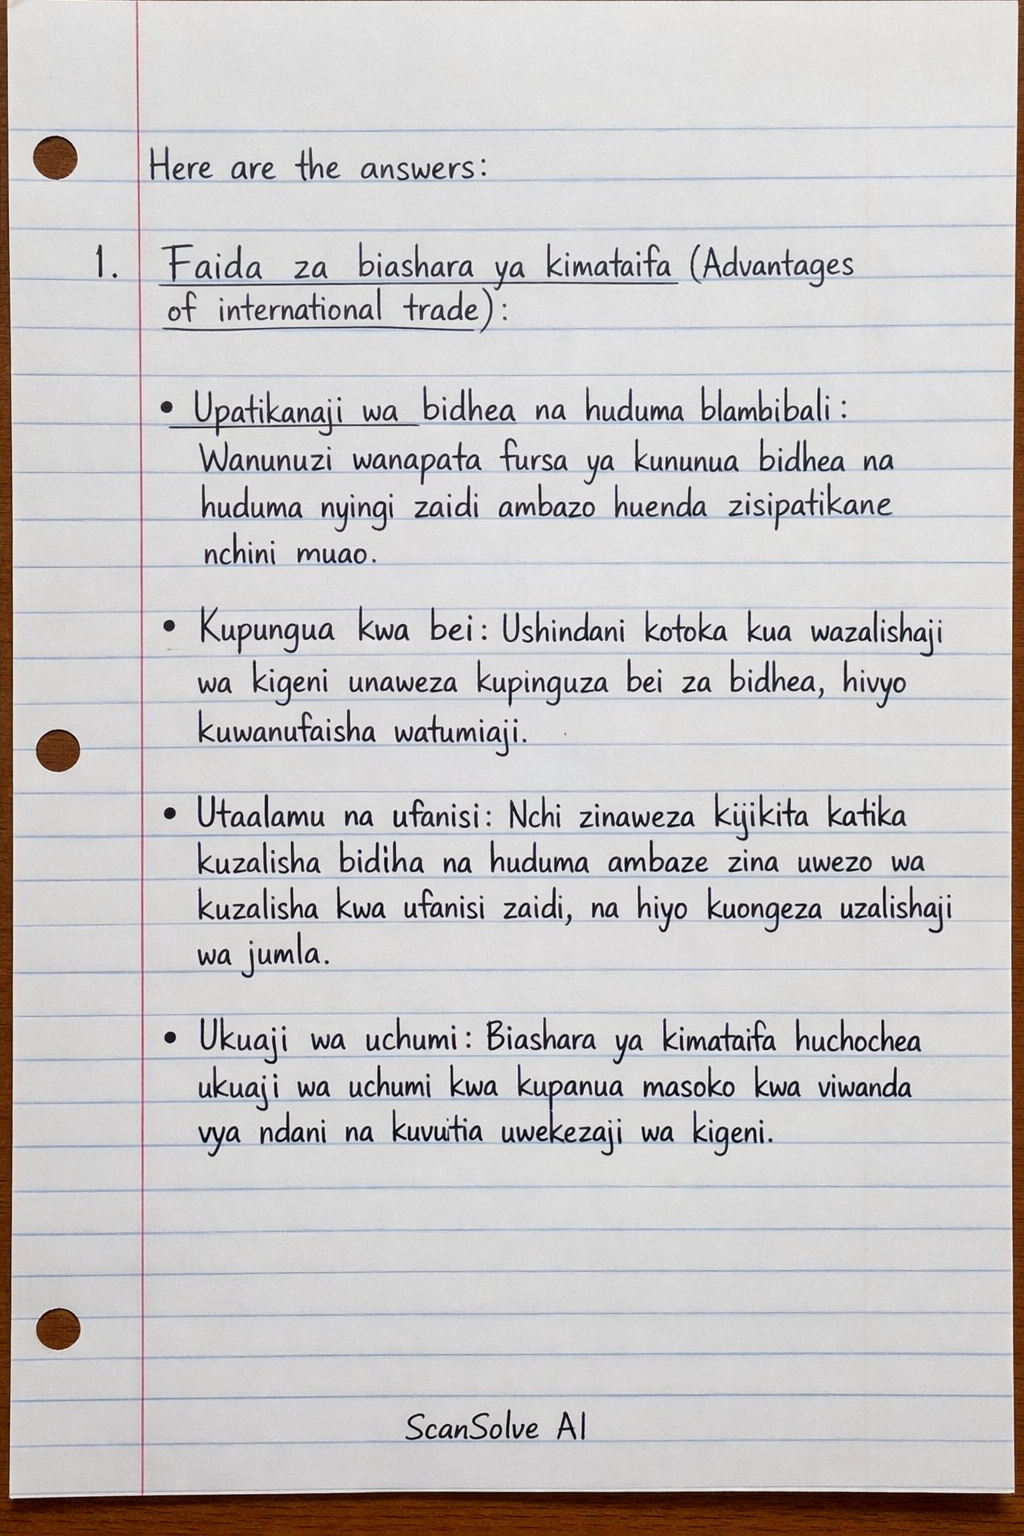 Here are the answers:
1. Faida za biashara ya kimataifa (Advantages
of international trade):
• Upatikanaji wa bidhea na huduma blambibali:
Wanunuzi wanapata fursa ya kununua bidhea na
huduma nyingi zaidi ambazo huenda zisipatikane
nchini muao.
• Kupungua kwa bei: Ushindani kotoka kua wazalishaji
wa kigeni unaweza kupinguza bei za bidhea, hivyo
kuwanufaisha watumiaji.
• Utaalamu na ufanisi: Nchi zinaweza kijikita katika
kuzalisha bidiha na huduma ambaze zina uwezo wa
kuzalisha kwa ufanisi zaidi, na hiyo kuongeza uzalishaji
wa jumla.
• Ukuaji wa uchumi: Biashara ya kimataifa huchochea
ukuaji wa uchumi kwa kupanua masoko kwa viwanda
vya ndani na kuvutia uwekezaji wa kigeni.
ScanSolve AI